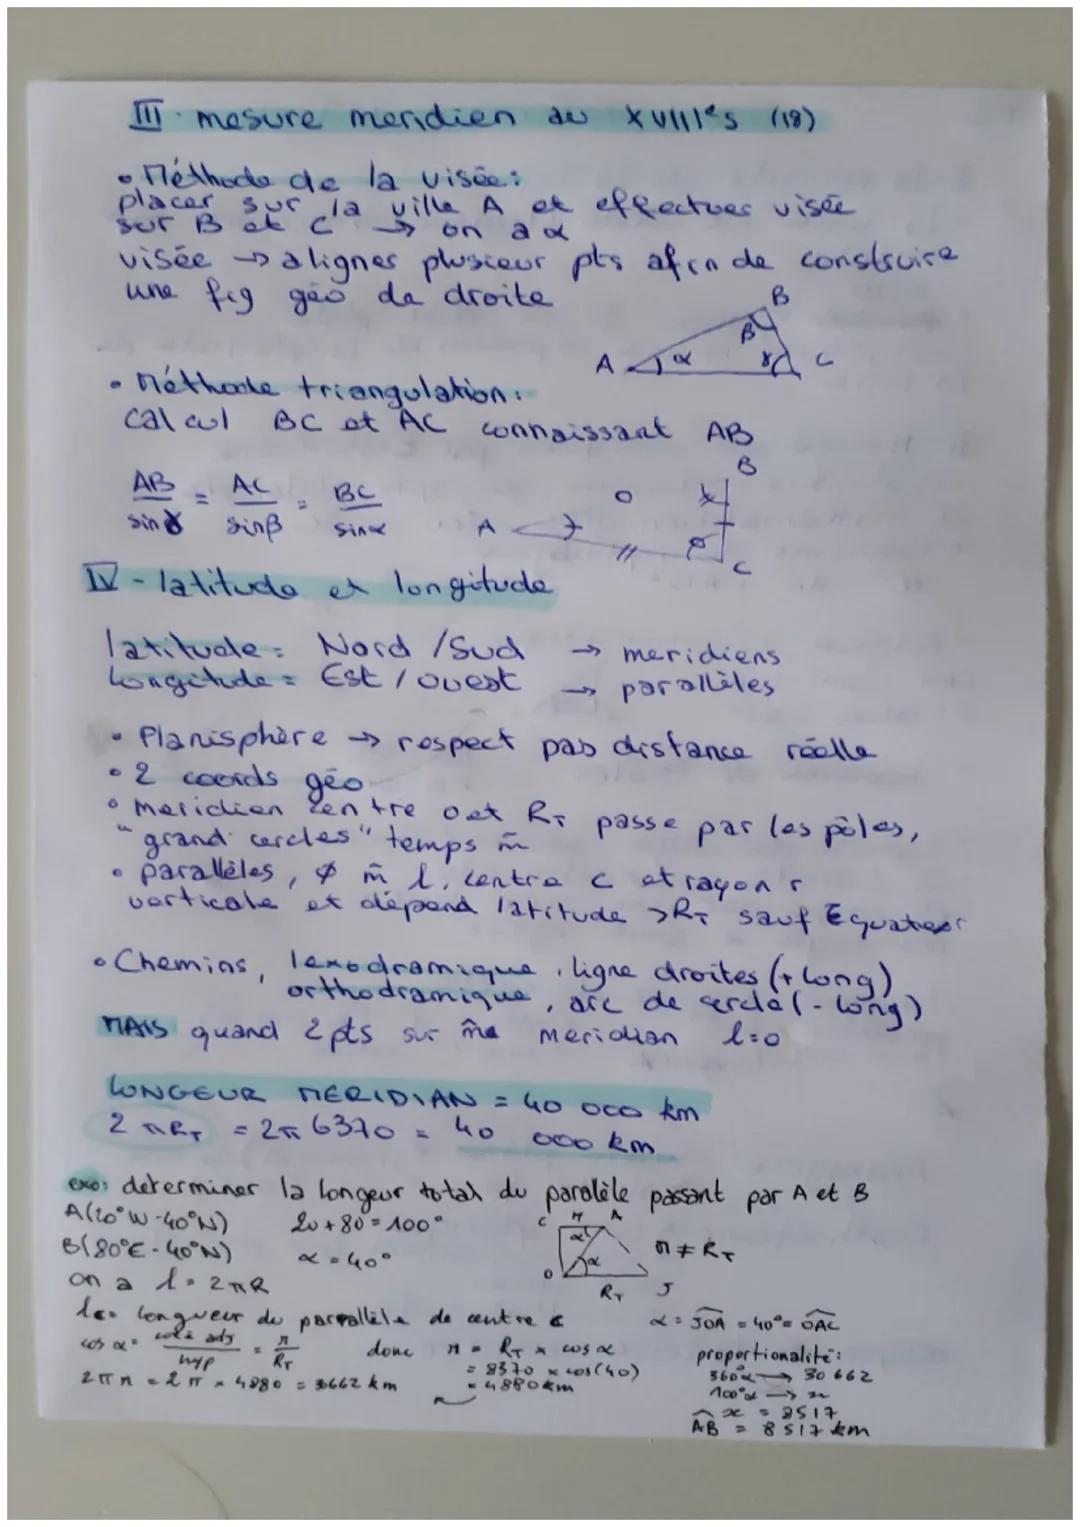 III mesure meridien au XVIIIes (18)
• Méthode de la visée:
placer sur la ville A et effectuer visée
sur B et C → on a α
visée → aligner plusieur pts afin de construire
une fig géo de droite
B
β
A α γ C
• Méthode triangulation:
calcul BC et AC connaissant AB
AB/sin γ = AC/sin β = BC/sin α
B
A
C
IV - latitude et longitude
latitude = Nord / Sud → meridiens
Longitude = Est / ouest → parallèles
• Planisphère → respect pas distance réelle
• 2 coords géo
• meridien centre o et RT passe par les pôles,
"grand cercles" temps m̂
• parallèles, ∅ m̂ l. centre c et rayon r
verticale et dépend latitude >RT sauf Equateur
• Chemins, lexodramique, ligne droites (+ long)
orthodramique, arc de cercle (- long)
MAIS quand 2 pts sur m̂e meridian l=0
LONGEUR MERIDIAN = 40 000 km
2πRT = 2π 6370 = 40 000 km
exo: determiner la longeur total du paralèle passant par A et B
A(20°W-40°N) 20+80=100°
B(80°E-40°N) α = 40°
C r A
α
α
O RT J
r ≠ RT
on a l = 2πR
lc= longueur du parrallèle de centre c
α = JOA = 40° = OAC
cos α = coté adj/hyp = r/RT donc r = RT × cos α
= 8370 × cos(40)
= 4880km
2πr = 2π × 4880 = 30662 km
proportionalité:
360° → 30 662
100° → x
x = 8517
AB = 8517 km